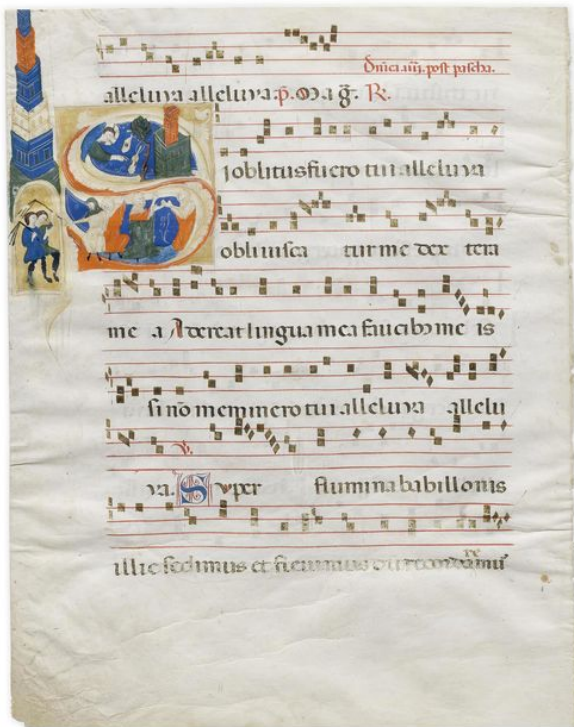 Dnica iiii. post pascha.
alleluya alleluya. p. Mag. R.
Si oblitus fuero tui alleluya
obliuisca tur me dex tera
me a Adereat lingua mea faucib9 me is
si nō meminero tui alleluya allelu
ya. V. Super flumina babillonis
illic sedimus et fleuimus dum recordaremur